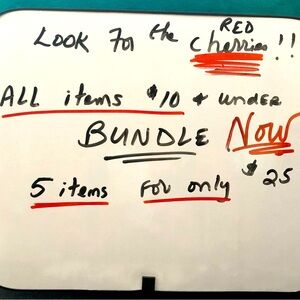 RED
LOOK For the Cherries!!
ALL items $10 & under
BUNDLE Now
5 items For only $25